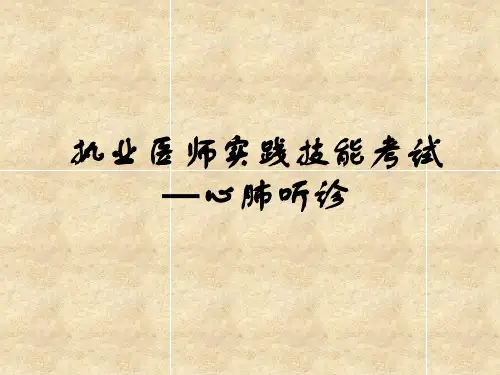 执业医师实践技能考试
—心肺听诊